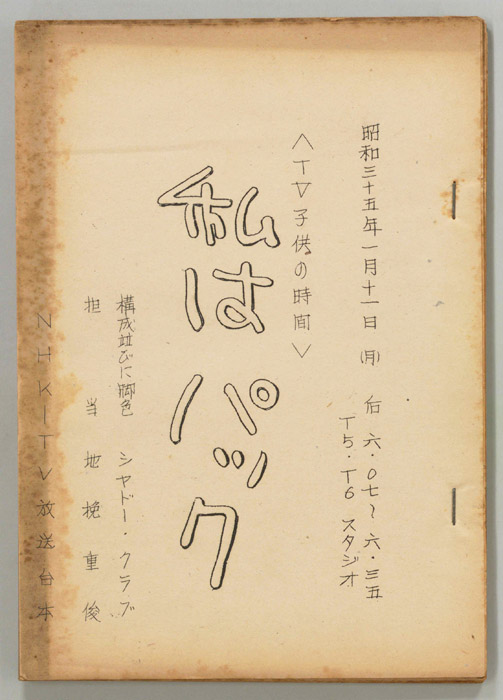 昭和三十五年一月十一日(月) 后六・〇七〜六・三五
T5・T6 スタジオ
〈TV子供の時間〉
私はパック
構成並びに脚色 シャドー・クラブ
担当 地挽重俊
NHK-TV放送台本